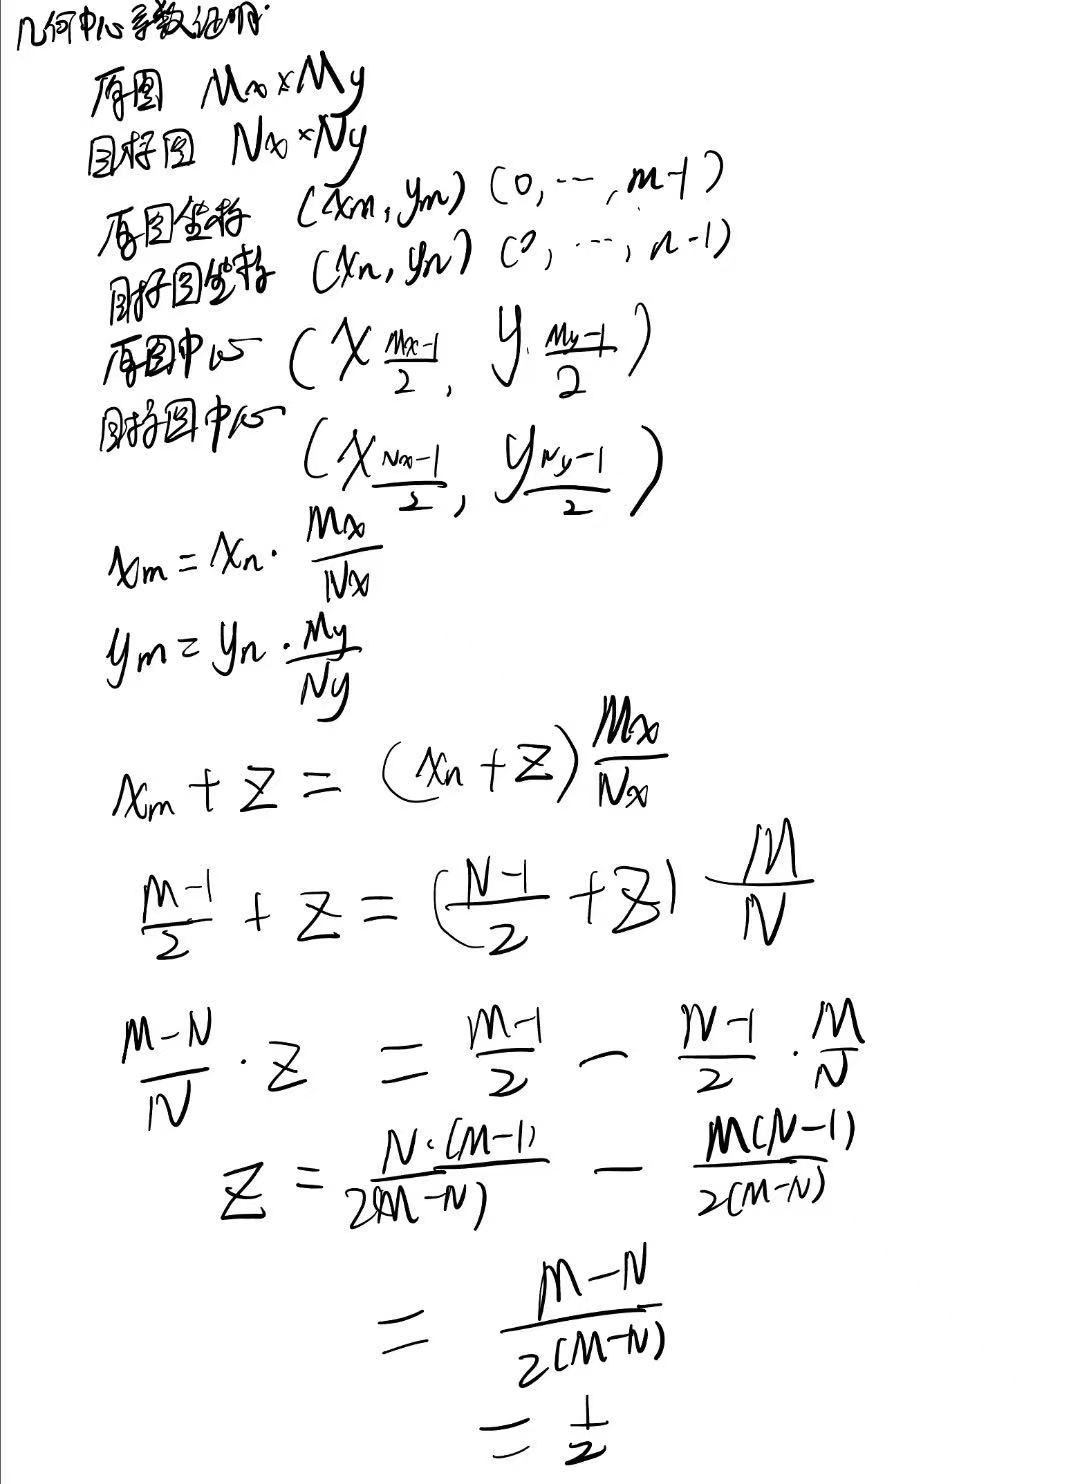 几何中心系数证明.
原图 Mx×My
目标图 Nx×Ny
原图坐标 (xm, ym) (0, ..., m-1)
目标图坐标 (xn, yn) (0, ..., n-1)
原图中心 (x (Mx-1)/2, y (My-1)/2)
目标图中心 (x (Nx-1)/2, y (Ny-1)/2)
xm = xn · Mx/Nx
ym = yn · My/Ny
xm + Z = (xn + Z) Mx/Nx
(M-1)/2 + Z = ((N-1)/2 + Z) M/N
(M-N)/N · Z = (M-1)/2 - (N-1)/2 · M/N
Z = N·(M-1)/2(M-N) - M(N-1)/2(M-N)
= (M-N)/2(M-N)
= 1/2